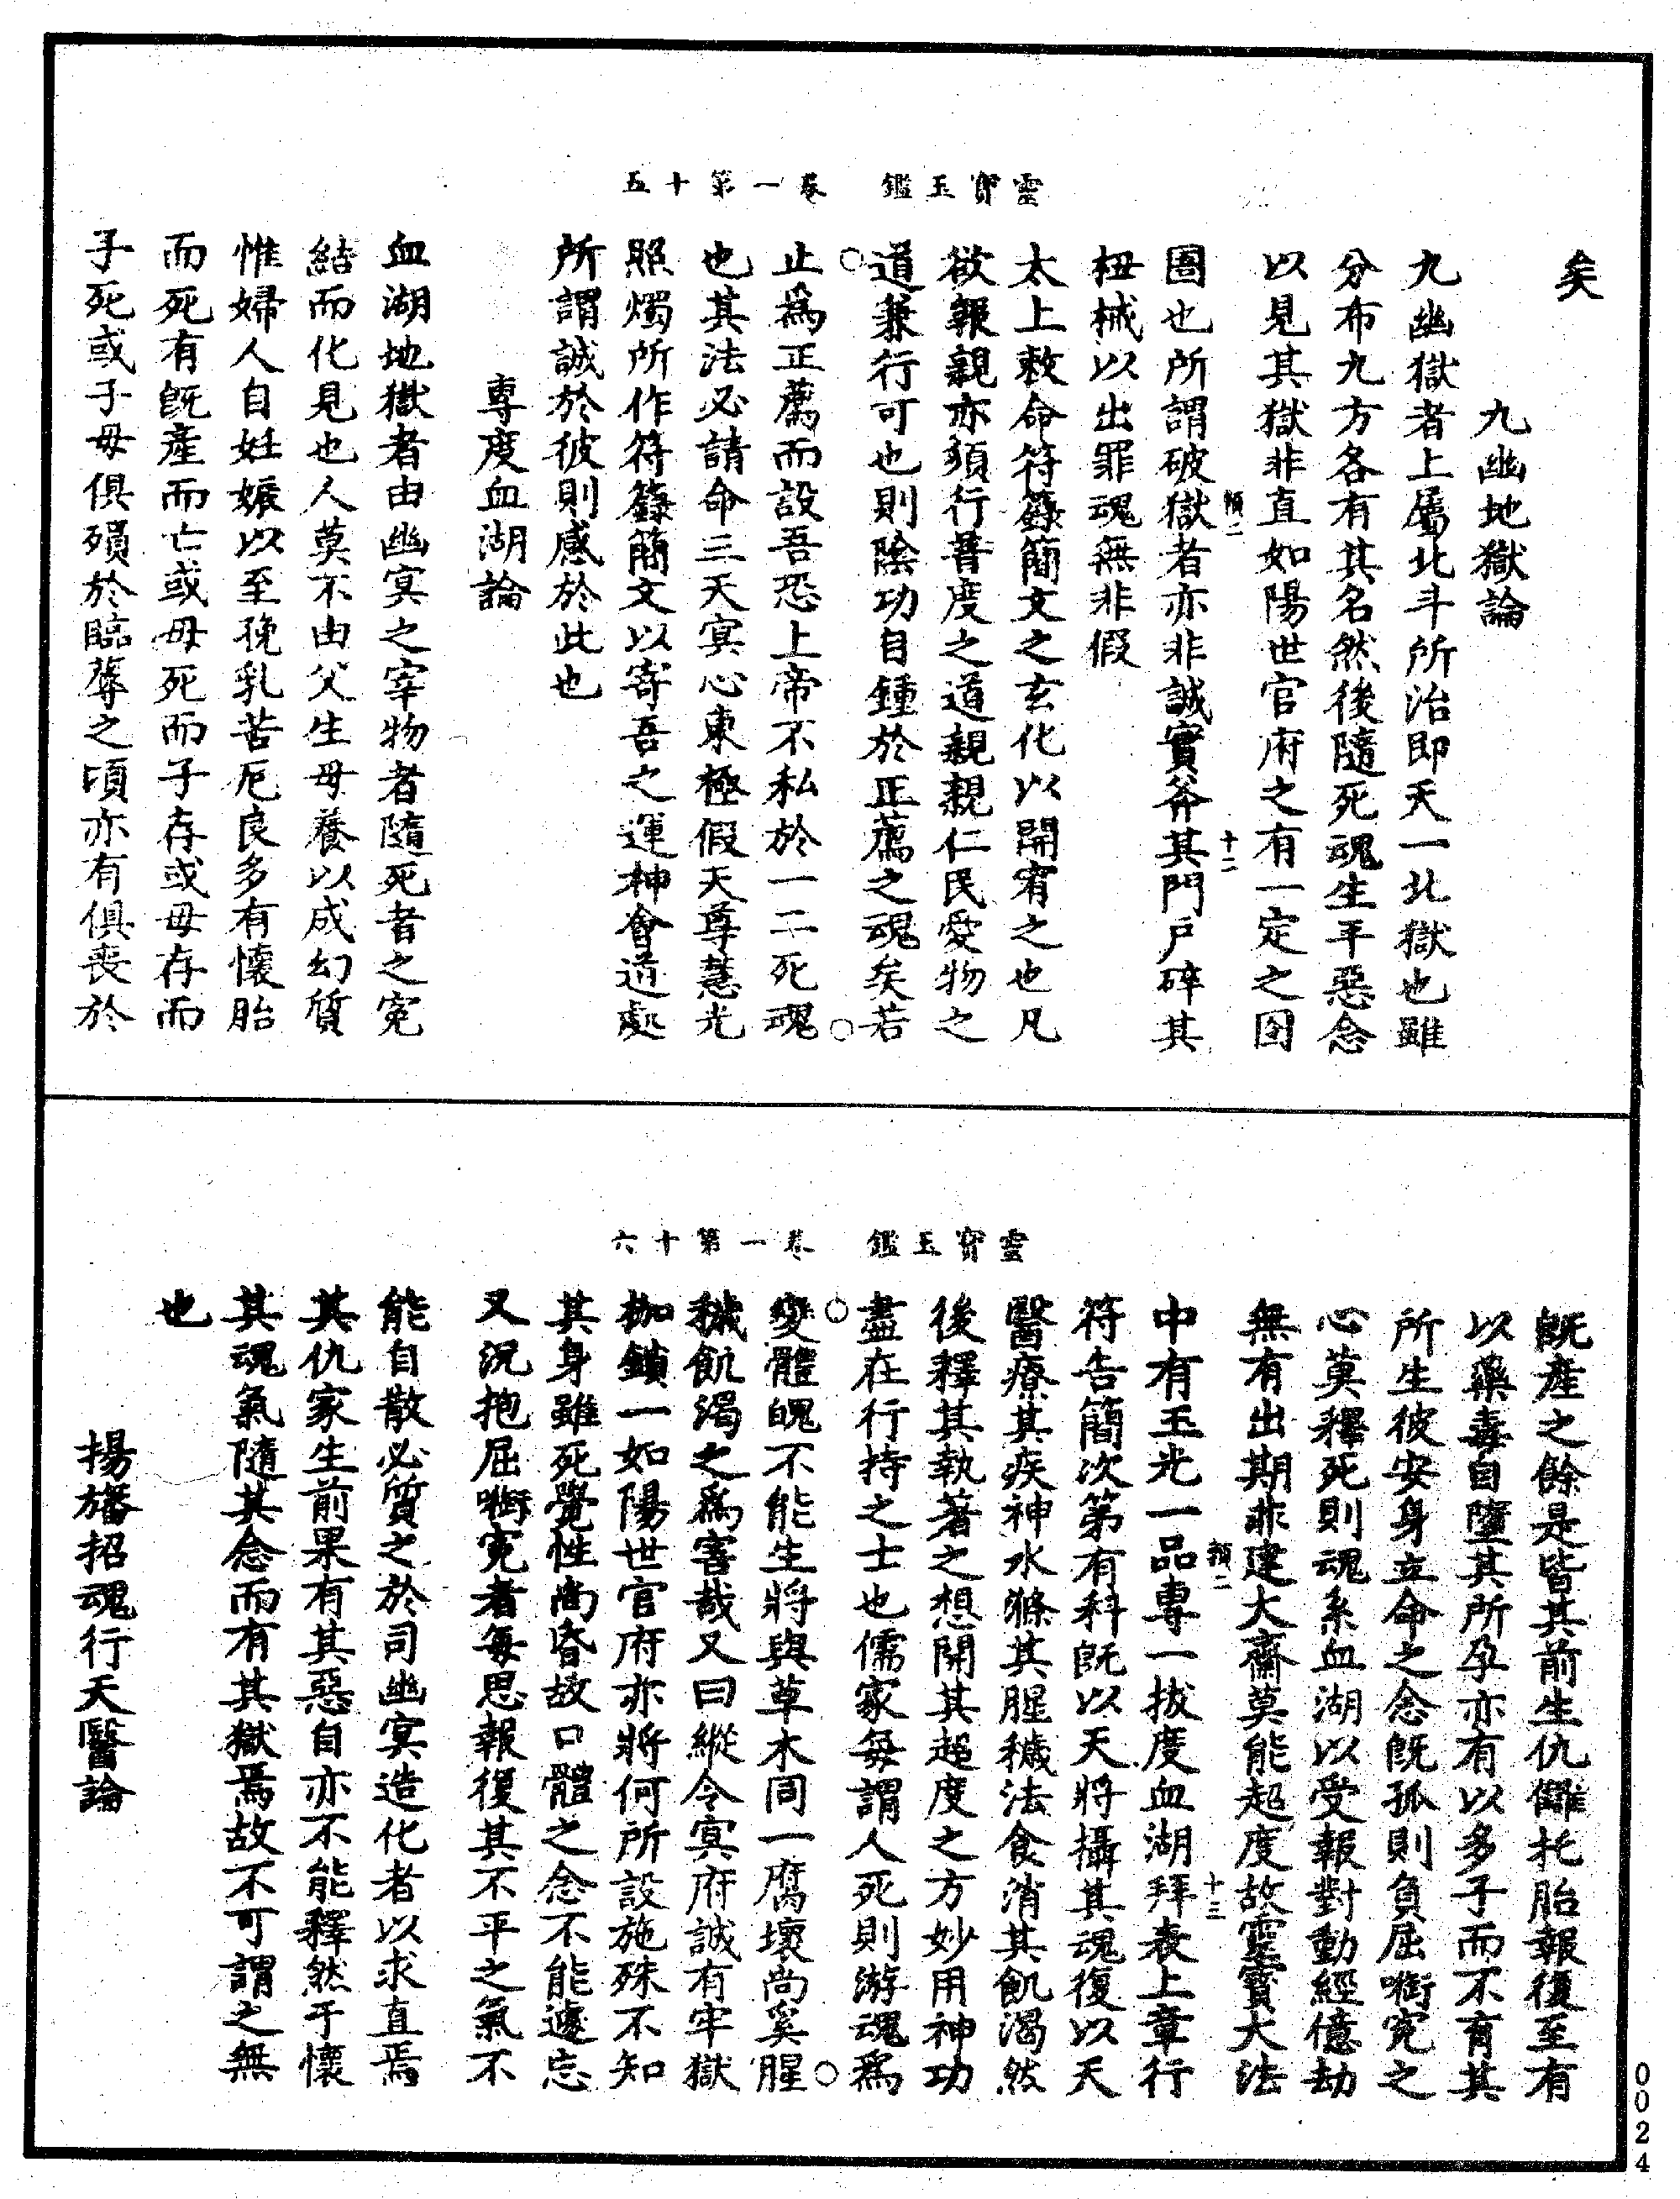 靈寶玉鑑　卷一第十五
矣
九幽地獄論
九幽獄者上屬北斗所治即天一北獄也雖
分布九方各有其名然後隨死魂生平惡念
以見其獄非直如陽世官府之有一定之囹
圄也所謂破獄者亦非誠實斧其門戶碎其
杻械以出罪魂無非假
太上敕命符籙簡文之玄化以開宥之也凡
欲報親亦須行普度之道親親仁民愛物之
道兼行可也則陰功自鍾於正薦之魂矣若
止爲正薦而設吾恐上帝不私於一二死魂
也其法必請命三天冥心東極假天尊慧光
照燭所作符籙簡文以寄吾之運神會道處
所謂誠於彼則感於此也
專度血湖論
血湖地獄者由幽冥之宰物者隨死者之寃
結而化見也人莫不由父生母養以成幻質
惟婦人自妊娠以至㝃乳苦厄良多有懷胎
而死有旣產而亡或母死而子存或母存而
子死或子母俱殞於臨蓐之頃亦有俱喪於
十二
靈寶玉鑑　卷一第十六
旣產之餘是皆其前生仇讎托胎報復至有
以藥毒自墮其所孕亦有以多子而不育其
所生彼安身立命之念旣孤則負屈啣寃之
心莫釋死則魂系血湖以受報對動經億劫
無有出期非建大齋莫能起度故靈寶大法
中有玉光一品專一拔度血湖拜表上章行
符告簡次第有科旣以天將攝其魂復以天
醫療其疾神水滌其腥穢法食消其飢渴然
後釋其執著之想開其超度之方妙用神功
盡在行持之士也儒家每謂人死則游魂爲
變體魄不能生將與草木同一腐壞尚奚腥
穢飢渴之爲害哉又曰縱令冥府誠有牢獄
枷鎖一如陽世官府亦將何所設施殊不知
其身雖死覺性尚昏故口體之念不能遽忘
又況抱屈啣寃者每思報復其不平之氣不
能自散必質之於司幽冥造化者以求直焉
其仇家生前果有其惡自亦不能釋然于懷
其魂氣隨其念而有其獄焉故不可謂之無
也
揚旛招魂行天醫論
十三
0024